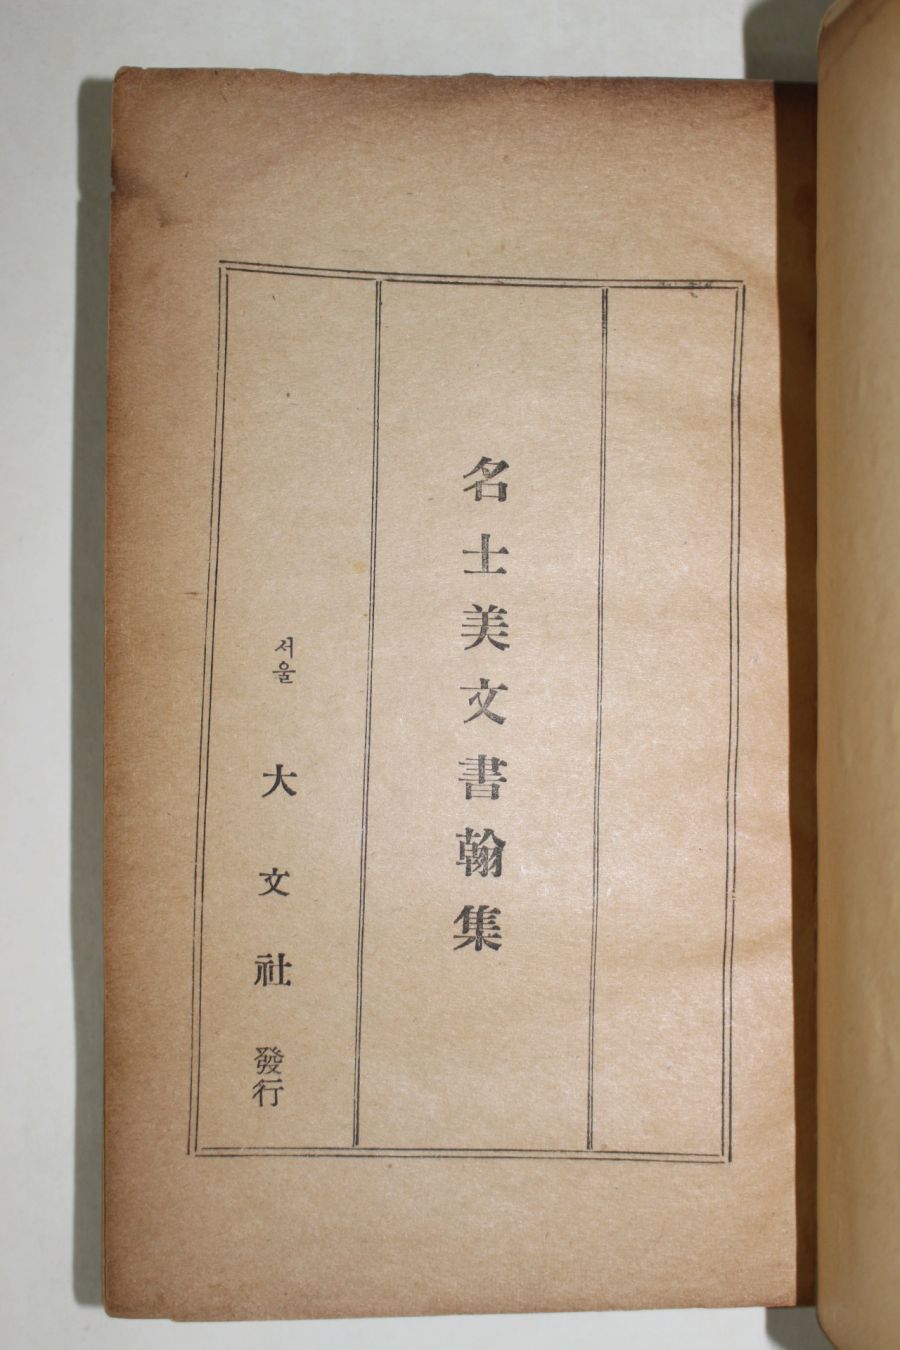 名士美文書翰集
서울 大文社 發行